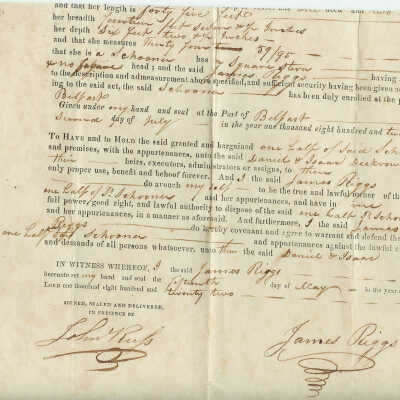 and that her length is forty five feet
her breadth fourteen feet seven & ½ Inches
her depth Six feet two ½ Inches
and that she measures thirty four tons 39/95
that she is a Schooner has Square Stern
& no figure head; and the said James Riggs having
to the description and admeasurement above specified, and sufficient security having been given
ing to the said act, the said Schooner has been duly enrolled at the p
Belfast
Given under my hand and seal at the Port of Belfast
Second day of July in the year one thousand eight hundred and
To Have and to Hold the said granted and bargained one half of Said Sch
and premises, with the appurtenances, unto the said Daniel & Isaac
their heirs, executors, administrators or assigns, to their
only proper use, benefit and behoof forever. And I the said James Riggs
do avouch my self to be the true and lawful owner of the
one half of Sd Schooner and her appurtenances, and have in me
full power, good right, and lawful authority to dispose of the said one half Sd Schoon
and her appurtenances, in manner as aforesaid. And furthermore, I the said James
Riggs do hereby covenant and agree to warrant and defend the
one half Schooner and appurtenances against the lawful c
and demands of all persons whatsoever, unto the said Daniel & Isaac
In Witness Whereof, I the said James Riggs
hereunto set my hand and seal the fifteenth day of May in the year
Lord one thousand eight hundred and twenty two
Signed, Sealed and Delivered,
in presence of
John Russ
James Riggs